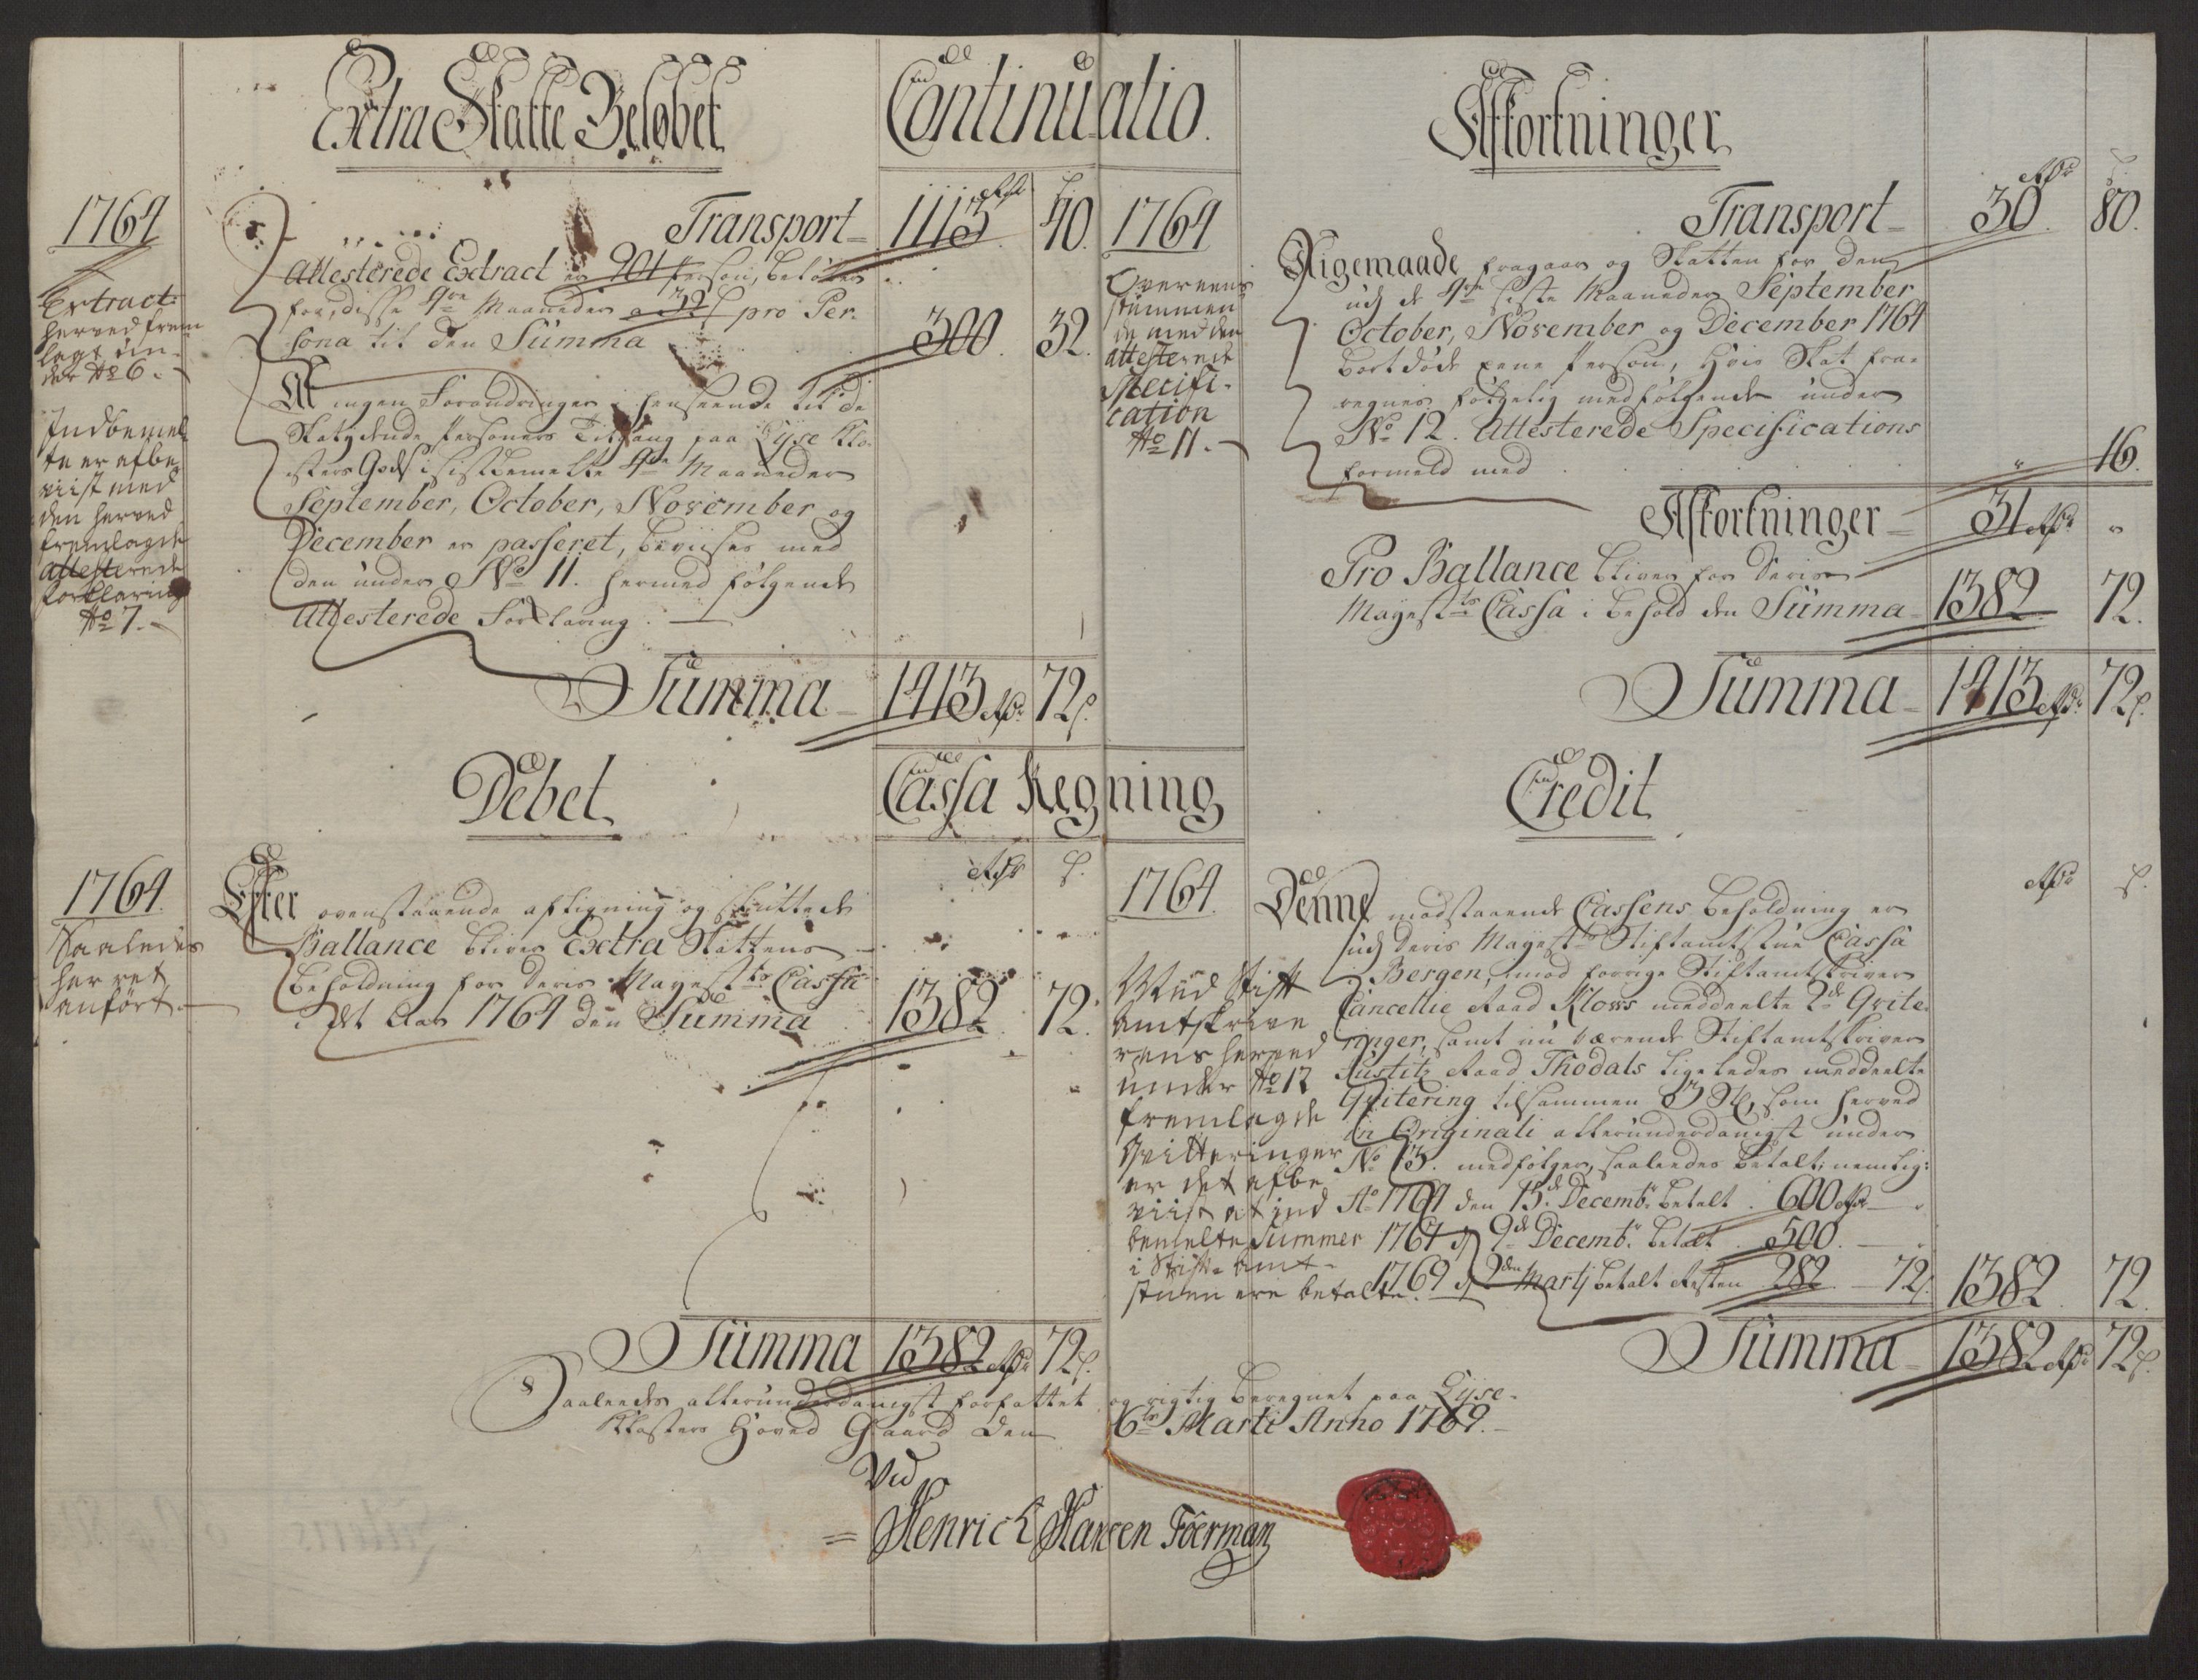 Extra Skatte Beløbet
Continuatio.
Afkortninger
1764
Extract
herved frem
lagt ün-
der No 6.
Indbemel
te er afbe
viist med
den herved
fremlagde
attesterede
forklaring
No 7.
Rdr ß
Transport 1113 40.
Attesterede Extract er 901 Person, beløber
for disse 4re Maaneder a 32 ß pro Per-
sona til den Summa 300. 32.
At ingen Forandringer i henseende til de
Skatydende Personers Tilgang paa Lyse Klo-
sters Gods i sistbemelte 4re Maaneder
September, October, November og
December er passeret, beviises med
den under No 11. hermed følgende
Attesterede Forklaring.
Summa 1413 Rdr 72 ß.
1764
Overeens
stemmen
de med den
attesterede
Specifi-
cation
No 11.
Rdr ß
Transport 30. 80.
Ligemaade fragaar og Skatten for den
udj de 4re siste Maaneder September
October, November og December 1764
bortdøde eene Person, hvis Skat fra-
regnes følgelig medfølgende under
No 12. Attesterede Specifications
formeld med " 16.
Afkortninger 31 Rdr "
Pro Ballance bliver for Deris
Mayestts Cassa i behold den Summa 1382 72.
Summa 1413 Rdr 72 ß.
Debet
Cassa Regning
Credit
1764
Saaledes
her ret
anført
Rdr ß.
Efter ovenstaaende afligning og sluttede
Ballance bliver Extra Skattens
beholdning for Deris Mayestts Cassa
i det Aar 1764 den Summa 1382 72.
Summa 1382 Rdr 72 ß.
1764
Med Stift
amtskrive
rens herved
under No 12
fremlagde
Qvitteringer
er det afbe
viist at ind
bemelte Summer
i Stift-amt-
stuen ere betalte.
Rdr ß.
Denne modstaaende Cassens beholdning er
udj Deris Mayestts Stiftamtstue Cassa
i Bergen, mod forrige Stiftamtskriver
Cancellie Raad Klows meddeelte 2de Qvite-
ringer, samt nu værende Stiftamtskriver
Justitz Raad Thodals ligeledes meddeelte
Qvitering tilsammen 3 St, som herved
in Originali allerunderdanigst under
No 13. medfølger, saaledes betalt; nemlig:
Ao 1764 den 15de Decembr betalt 600 Rdr "
1767 d 9de Decembr betalt 500. "
1769 d 2den Martj betalt Resten 282 72 ß 1382 72.
Summa 1382 Rdr 72 ß.
Saaledes allerunderdanigst forfattet og rigtig beregnet paa Lyse-
Klosters Hoved Gaard den 6te Marti Anno 1769.
Ved
Henrich Hansen Föerman